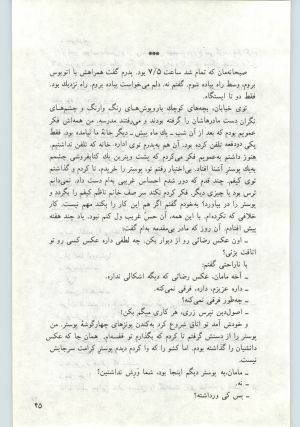 ***
صبحانه‌مان که تمام شد ساعت ۷/۵ بود. پدرم گفت همراهش با اتوبوس
بروم، وسط راه پیاده شوم. گفتم نه. دلم می‌خواست پیاده بروم. راه نزدیك بود.
فقط دو تا ایستگاه.
توی خیابان، بچه‌های کوچك باروپوش‌های رنگ وارنگ و چشم‌های
نگران دست مادرهاشان را گرفته بودند و می‌رفتند مدرسه. من همه‌اش فکر
عمویم بودم که بعد از آن شب ـ یك ماه پیش ـ دیگر خانهٔ ما نیامده بود.
یکی دودفعه تلفن کرده بود. آن هم به‌پدرم توی اداره. خانه که تلفن نداشتیم.
هنوز داشتم به‌عمویم فکر می‌کردم که پشت ویترین یك کتابفروشی چشمم
به‌یك پوستر آشنا افتاد. بی‌اختیار رفتم تو. پوستر را خریدم، تا کردم و گذاشتم
توی کیفم. چند قدم که دور شدم احساس غریبی به‌ام دست داد. نمی‌دانم
ترس بود یا چیزی دیگر. فکر کردم نکند سر صف خانم ناظم کیفم را بگردد و
پوستر را در بیاورد! به‌خودم گفتم اگر هم این کار را بکند مهم نیست. کار
خلافی که نکرده‌ام. با این همه، آن حسّ غریب ول کنم نبود. یاد چند هفته
پیش افتادم. آن روز که مادر بی‌مقدمه به‌ام گفت:
ـ اون عکس رضائی رو از دیوار بکن. چه لطفی داره عکس کسی رو تو
اتاقت بزنی؟
با ناراحتی گفتم:
ـ آخه مامان، عکس رضائی که دیگه اشکالی نداره.
ـ داره عزیزم، داره. فرقی نمی‌کنه.
ـ چه‌طور فرقی نمی‌کنه؟
ـ اصول‌دین نپرس زری، هر کاری میگم بکن!
و خودش آمد تو اتاق شروع کرد به‌کندن پونزهای چهارگوشهٔ پوستر. من
پوستر را از دستش گرفتم تا کردم که بگذارم تو قفسه‌ام. همان جا که عکس
دانشیان را گذاشته بودم. اما کشو را که وا کردم دیدم پوستر کرامت سرجایش
نیست.
ـ مامان،یه پوستر دیگم اینجا بود، شما ورش نداشتین؟
ـ نه.
ـ پس کی ورداشته؟
۴۵